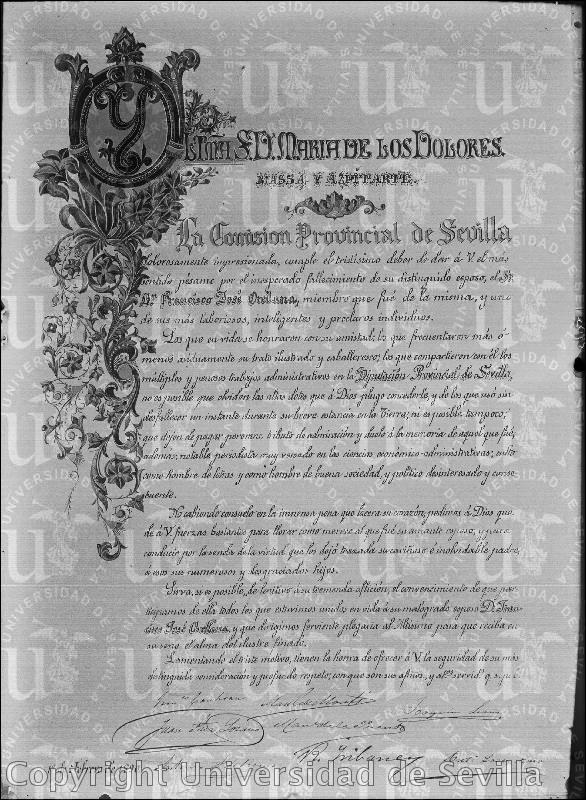 Y
Iltma. Sª. Dª. MARIA DE LOS DOLORES.
MASSA Y AZPITARTE.
La Comision Provincial de Sevilla
dolorosamente impresionada, cumple el tristísimo deber de dar á V. el más
sentido pésame por el inesperado fallecimiento de su distinguido esposo, el Sr.
D. Francisco José Orellana, miembro que fué de la misma, y uno
de sus más laboriosos, inteligentes y preclaros individuos.
Los que en vida se honraron con su amistad; los que frecuentaron más ó
menos asiduamente su trato ilustrado y caballeroso; los que compartieron con él los
múltiples y penosos trabajos administrativos en la Diputación Provincial de Sevilla,
no es posible que olviden las altas dotes que á Dios plugo concederle, y de las que usó sin
desfallecer un instante durante su breve estancia en la Tierra; ni es posible tampoco,
que dejen de pagar perenne tributo de admiración y duelo á la memoria de aquel que fué,
además, notable periodista muy versado en las ciencias económico-administrativas; culto
como hombre de letras y como hombre de buena sociedad, y político desinteresado y conse-
cuente.
No cabiendo consuelo en la inmensa pena que lacera su corazón, pedimos á Dios que
dé á V. fuerzas bastantes para llorar como merece al que fué su amante esposo, y para
conducir por la senda de la virtud que les dejó trazada su cariñoso é inolvidable padre,
á esos sus numerosos y desgraciados hijos.
Sirva, si es posible, de lenitivo á su tremenda aflicción, el convencimiento de que par-
ticipamos de ella todos los que estuvimos unidos en vida á su malogrado esposo D. Fran-
cisco José Orellana, y que dirigimos ferviente plegaria al Altísimo para que reciba en
su seno el alma del ilustre finado.
Lamentando el triste motivo, tienen la honra de ofrecer á V. la seguridad de su más
distinguida consideración y profundo respeto, con que son sus afmos. y atos. servids. q. s. p. b.
Juan
Manl. de la Puente
Joaquin
Copyright Universidad de Sevilla